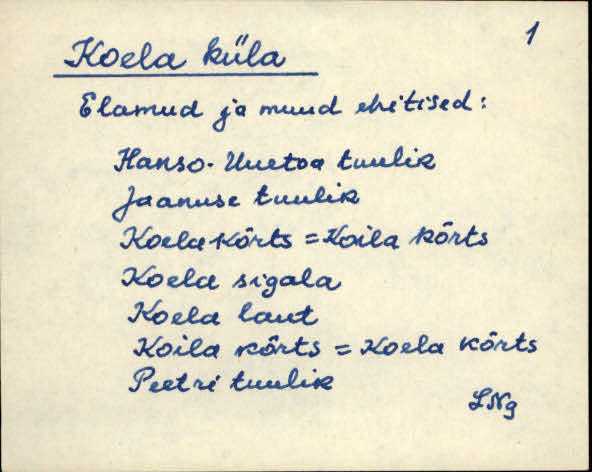 1
Koela küla
Elamud ja muud ehitised:
Hanso-Uuetoa tuulik
Jaanuse tuulik
Koela kõrts = Koila kõrts
Koela sigala
Koela laut
Koila kõrts = Koela kõrts
Peetri tuulik
LNg